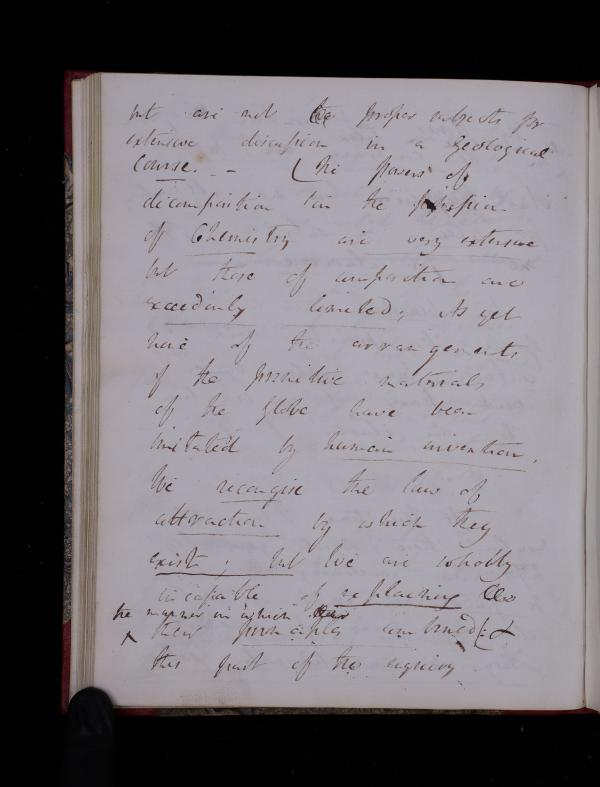 but are not the proper subjects for
extensive discussion in a Geological
Course. - - (The powers of
decomposition in the possession
of Chemistry are very extensive
but those of composition are
exceedingly limited; As yet
none of the arrangements
of the primitive materials
of the Globe have been
imitated by human invention.
We recognise the law of
attraction by which they
exist; but We are wholly
incapable of explaining
the manner in which
their principles combined (: &
this part of the enquiry